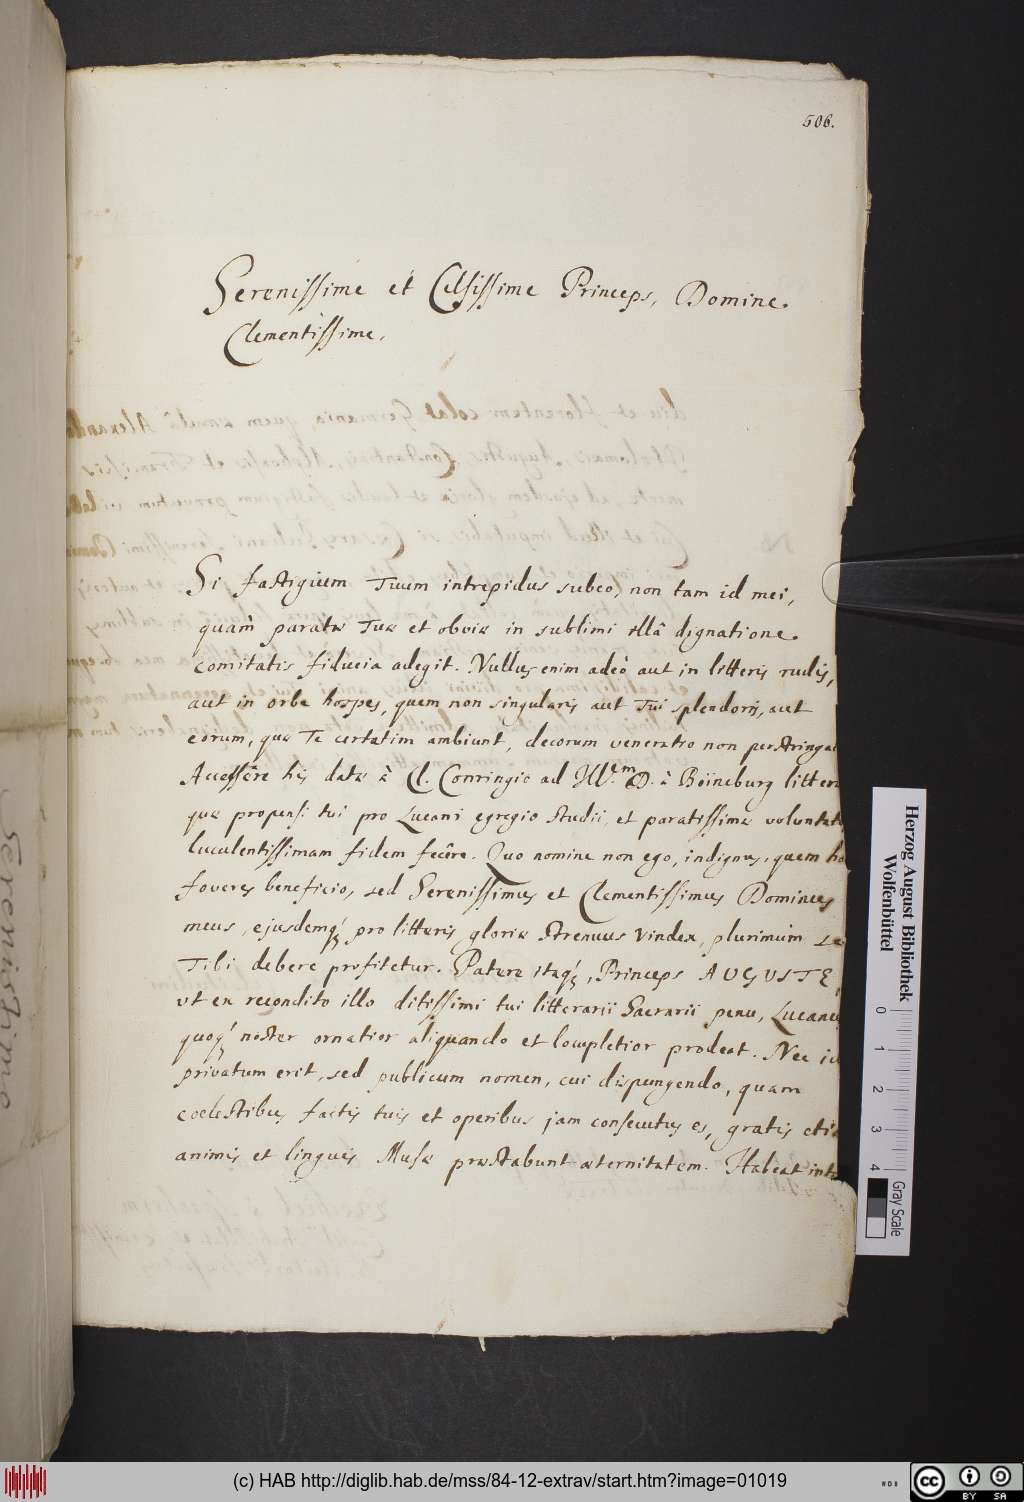 506.
Serenissime et Celsissime Princeps, Domine
Clementissime,
Si fastigium Tuum intrepidus subeo, non tam id mei,
quàm paratæ Tuæ et obviæ in sublimi illâ dignatione
comitatis fiducia adegit. Nullus enim adeò aut in litteris rudis,
aut in orbe hospes, quem non singularis aut Tui splendoris, aut
eorum, quæ Te certatim ambiunt, decorum veneratio non perstringa
Accessêre his datæ à Cl. Conringio ad Ill.m D. à Boineburg litter
quæ propensi tui pro Lucani egregio studii, et paratissimæ voluntat
luculentissimam fidem fecêre. Quo nomine non ego, indignus, quem ho
foveres beneficio, sed Serenissimus et Clementissimus Dominus
meus, ejusdemq́ pro litteris gloriæ strenuus vindex, plurimùm se
Tibi debere profitetur. Patere itaq́, Princeps AUGUSTE,
ut en recondito illo ditissimi tui litterarii Sacrarii penu, Lucanus
quoq́ noster ornatior aliquando et locupletior prodeat. Nec id
privatum erit, sed publicum nomen, cui dispungendo, quam
coelestibus factis tuis et operibus jam consecutus es, gratis etia
animis et linguis Musæ præstabunt æternitatem. Habeat inte
Herzog August Bibliothek
Wolfenbüttel
0 1 2 3 4
Gray Scale
(c) HAB http://diglib.hab.de/mss/84-12-extrav/start.htm?image=01019
cc BY SA